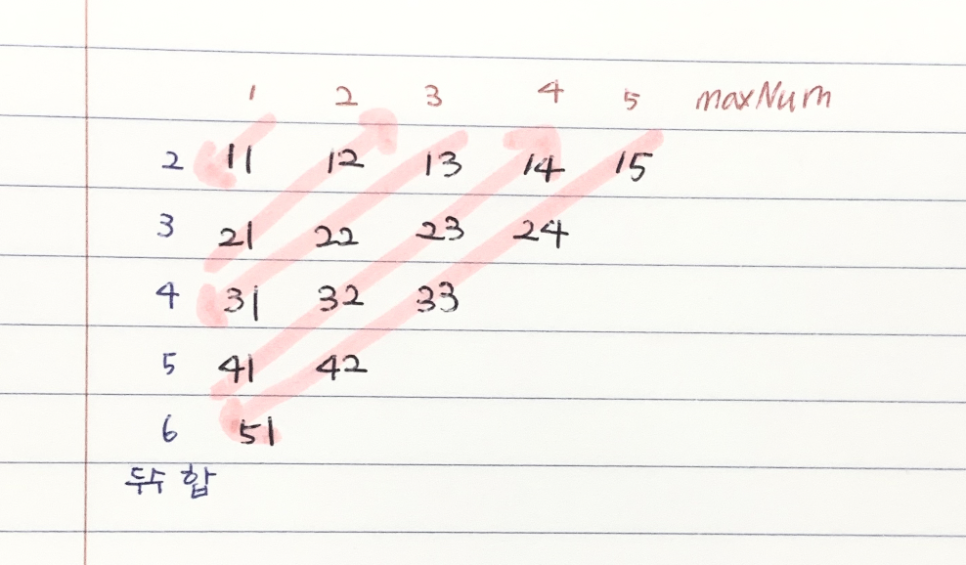 1 2 3 4 5 maxNum
2 11 12 13 14 15
3 21 22 23 24
4 31 32 33
5 41 42
6 51
두수 합